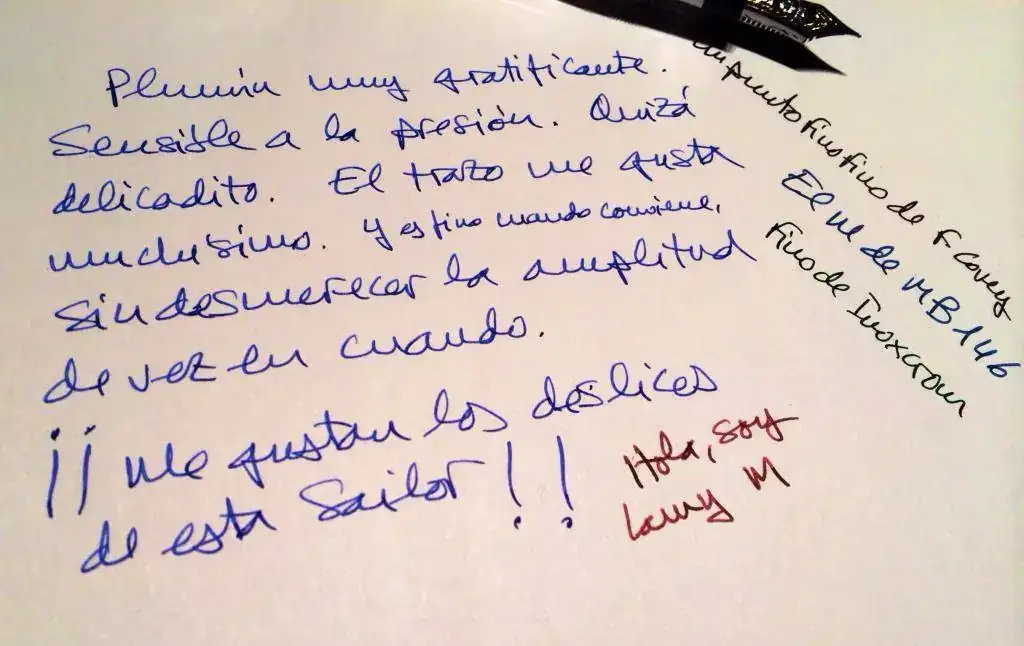 Plumín muy gratificante.
Sensible a la presión. Quizá
delicadito. El trazo me gusta
muchísimo. Y es fino cuando conviene,
sin desmerecer la amplitud
de vez en cuando.
¡¡Me gustan los deslices
de esta Sailor!!
Hola, soy
Lamy M
un punto fino fino de F Covey
El M de MB 146
Fino de Inoxcrom